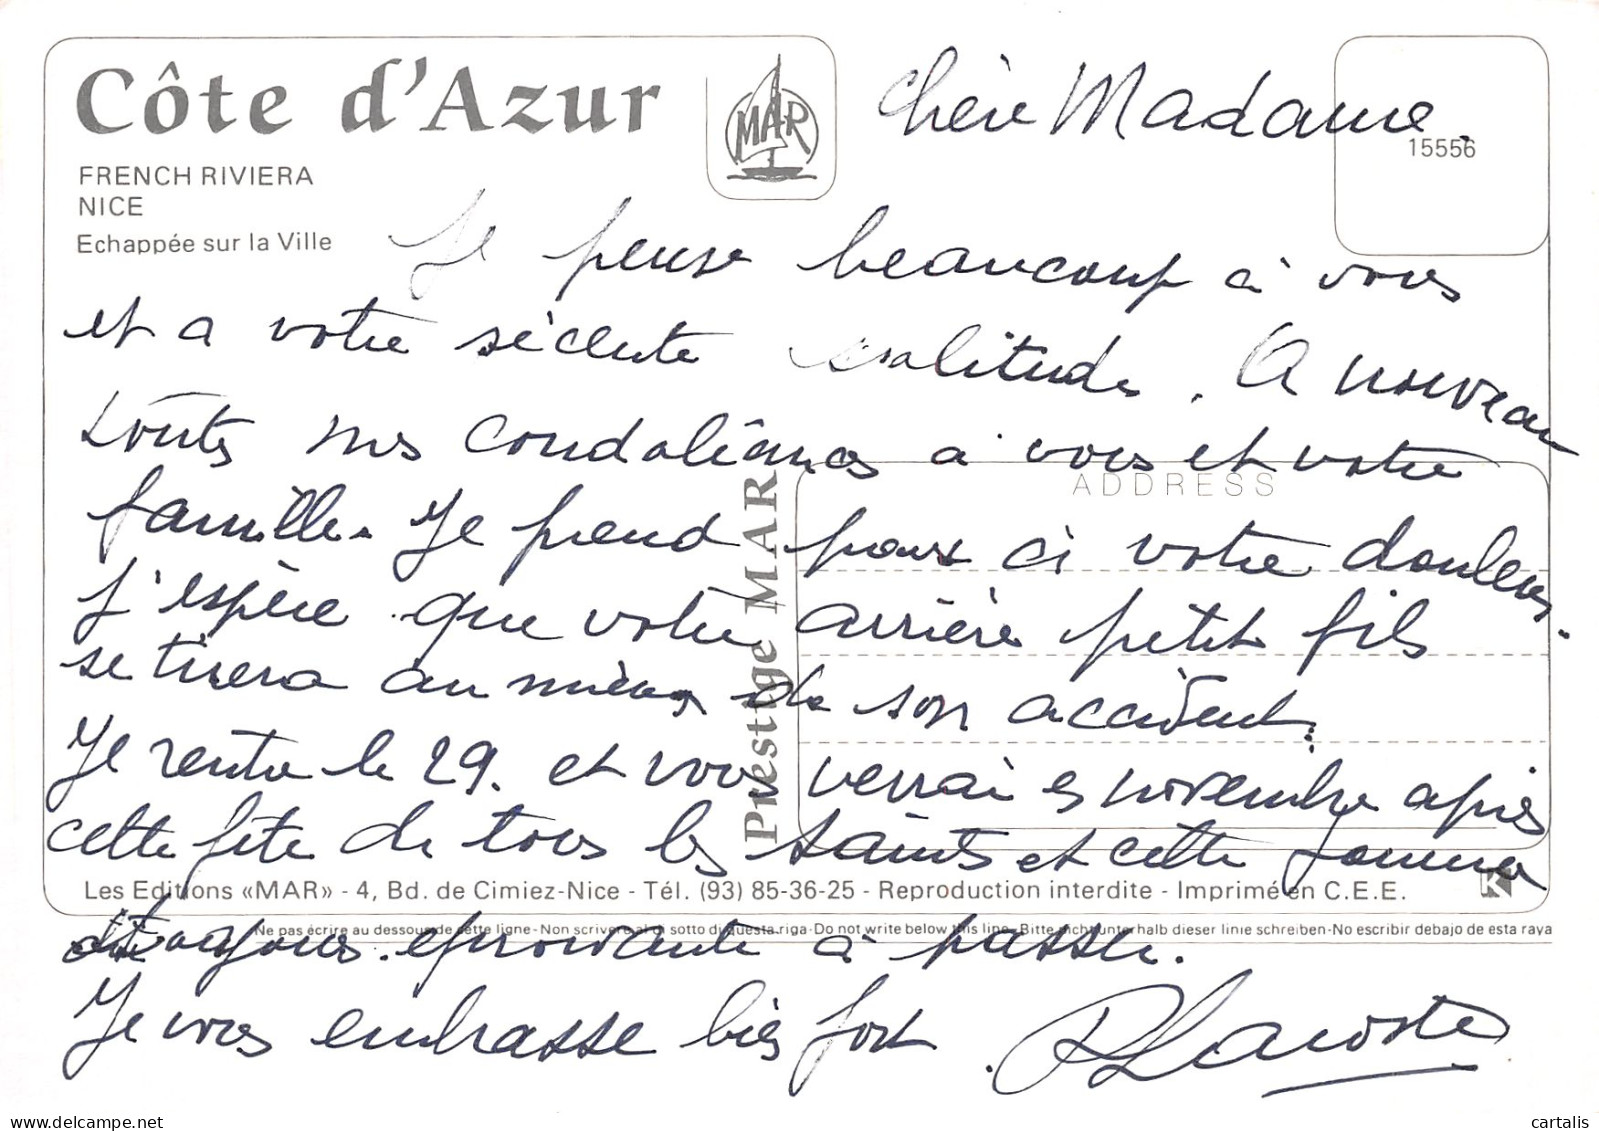 Côte d'Azur
FRENCH RIVIERA
NICE
Echappée sur la Ville
MAR
15556
Chère Madame.
Je pense beaucoup à vous
et a votre récente solitude. A nouveau
toutes mes condoléances a vous et votre
famille. Je prend part ci votre douleur.
J'espère que votre arrière petit fils
se tirera au mieux de son accident.
Je rentre le 29. et vous verrai en novembre après
cette fête de tous les saints et cette
toujours eprouvante à passer.
Je vous embrasse bien fort.
Lacoste
ADDRESS
Prestige MAR
Les Editions «MAR» - 4, Bd. de Cimiez-Nice - Tél. (93) 85-36-25 - Reproduction interdite - Imprimé en C.E.E.
K
Ne pas écrire au dessous de cette ligne-Non scrivere al di sotto di questa riga-Do not write below this line-Bitte nicht unterhalb dieser linie schreiben-No escribir debajo de esta raya
cartalis